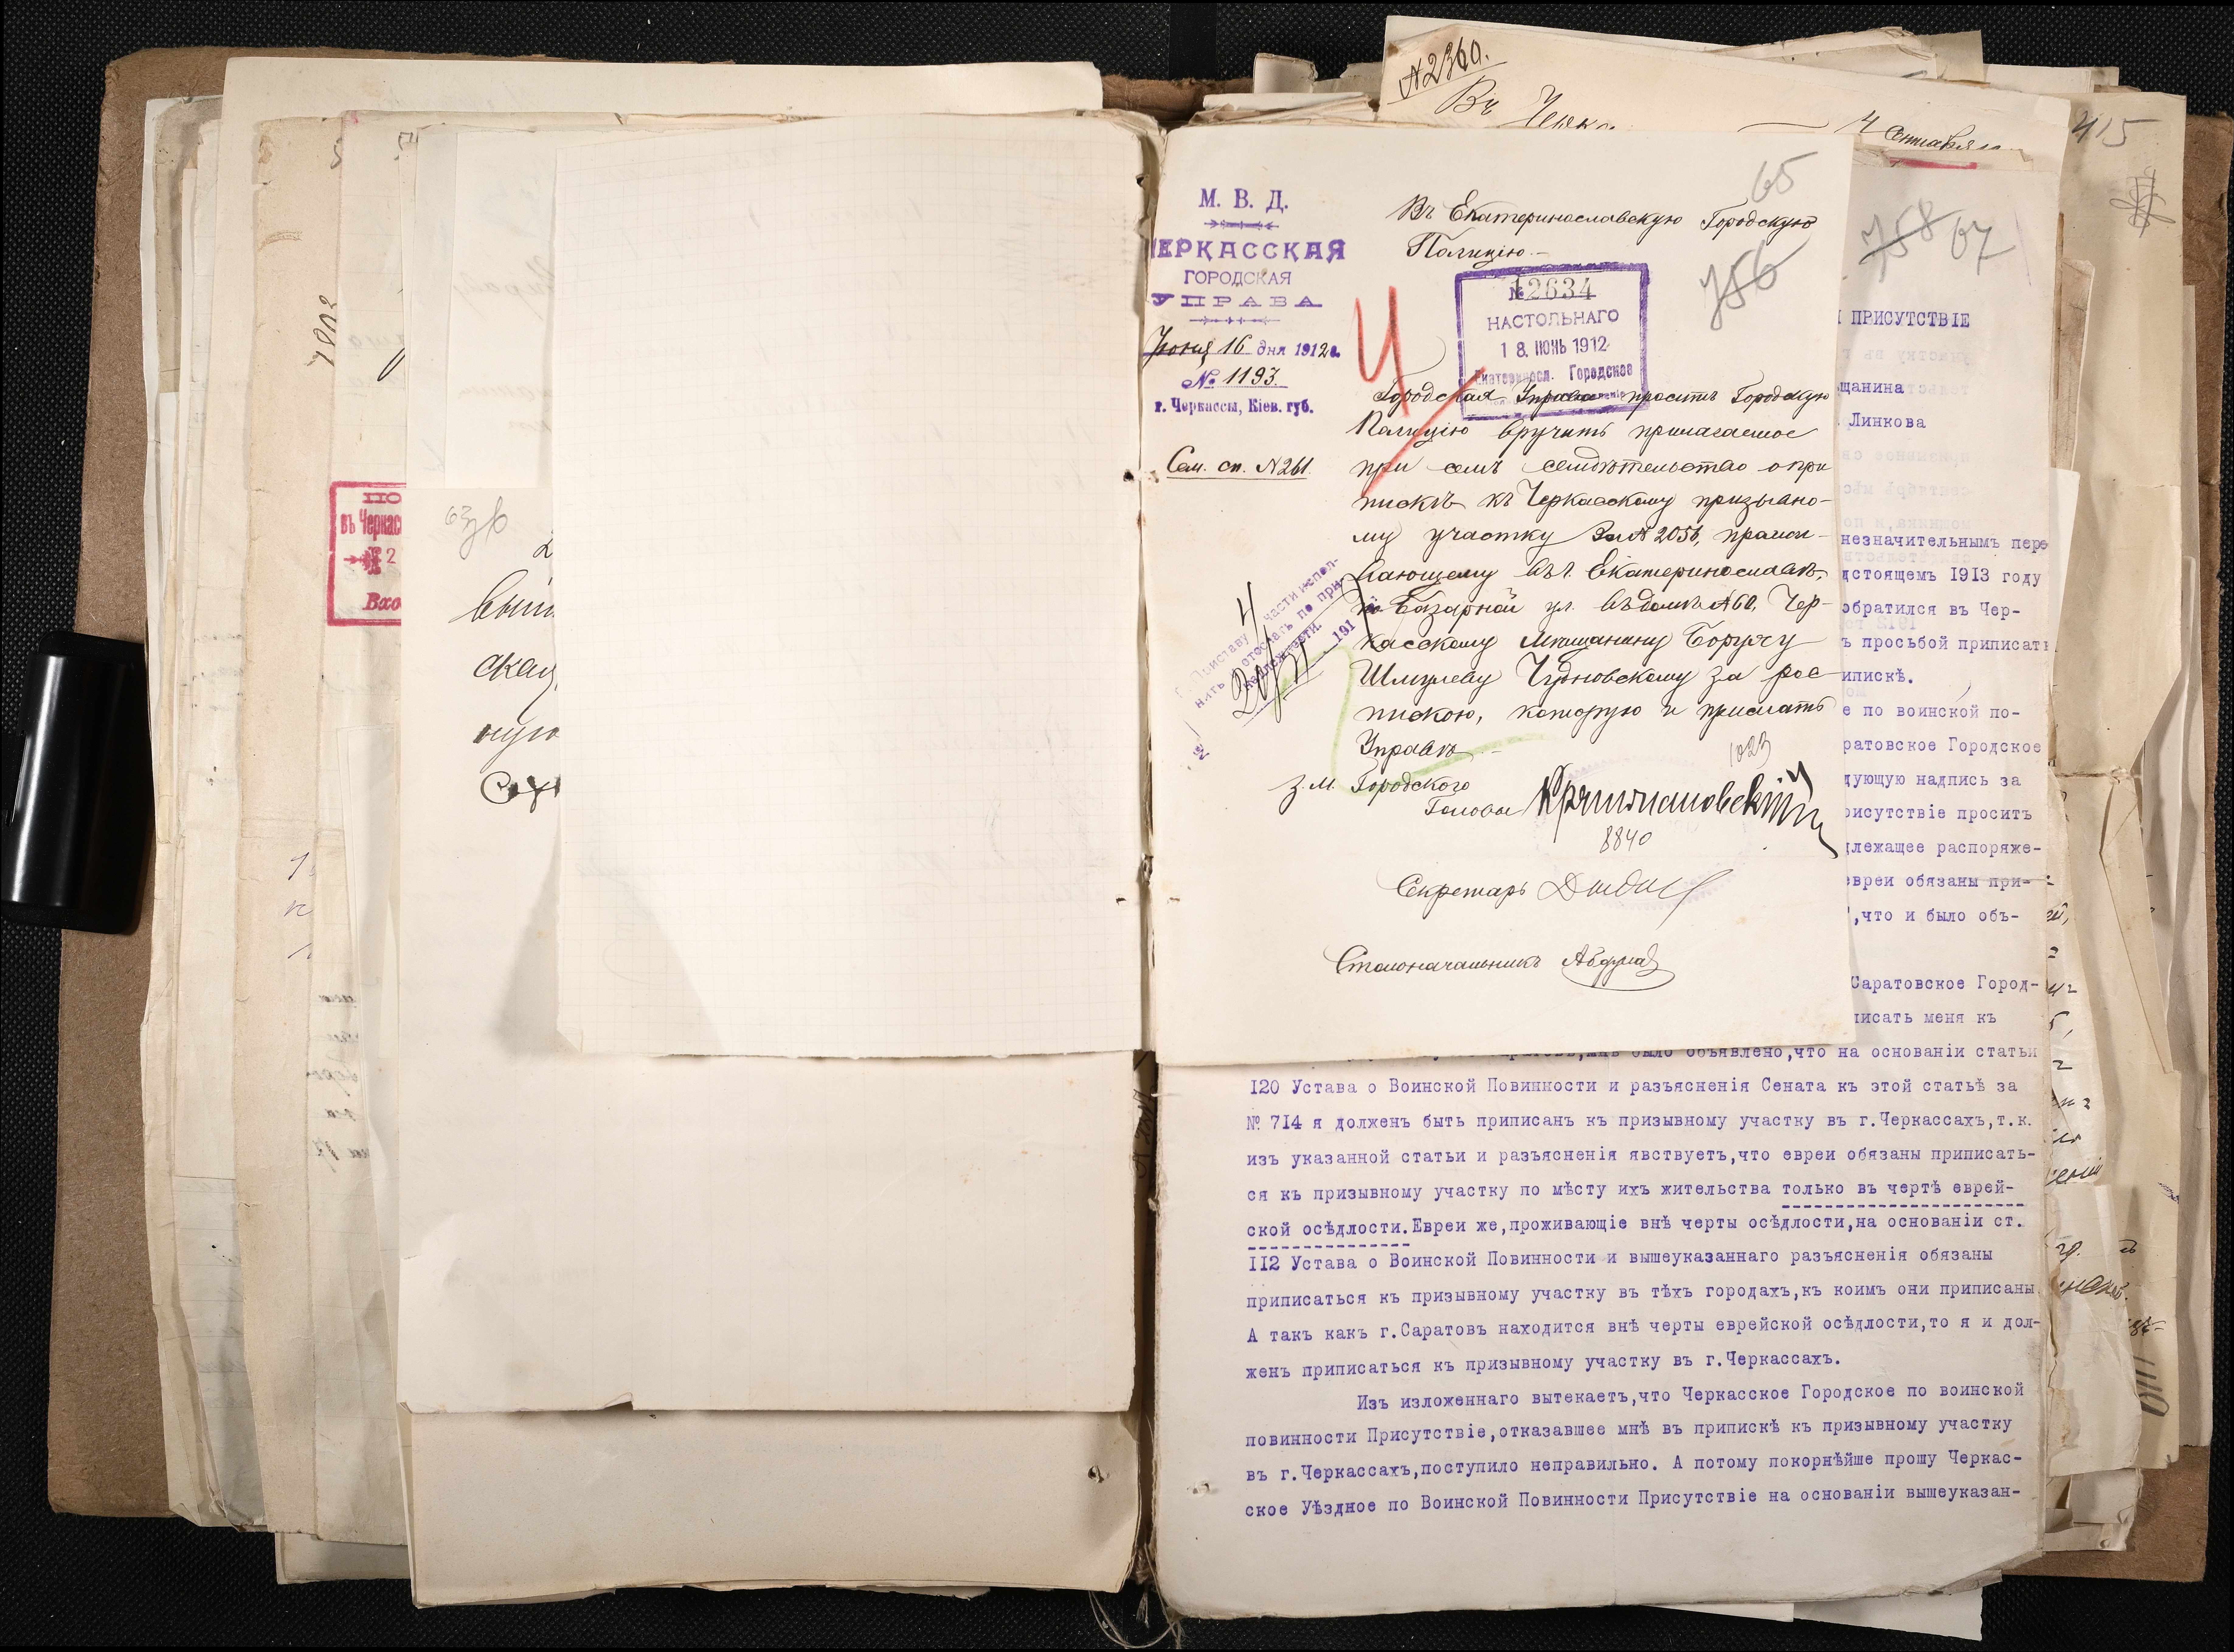 №2360.
Въ
4 Сентября
415
65
М. В. Д.
ЧЕРКАССКАЯ
ГОРОДСКАЯ
УПРАВА
Іюня 16 дня 1912 г.
№ 1193.
г. Черкассы, Кіев. губ.
Сем. сп. №261.
Въ Екатеринославскую Городскую
Полицію.-
756
№ 12634
НАСТОЛЬНАГО
18 ІЮНЬ 1912
Екатериносл. Городское
Городская Управа проситъ Городскую
Полицію вручить прилагаемое
при семъ свидѣтельство о при
пискѣ къ Черкасскому призывно-
му участку за № 2056, прожи-
вающему въ г. Екатеринославѣ,
по Базарной ул. въ домѣ №60, Чер-
касскому мѣщанину Боруху
Шмулеву Чудновскому за рос-
пискою, которую и прислать
Управѣ.-
1023
З.М. Городского
Головы
8840
Секретарь
Столоначальникъ
Приставу 4 части испол-
нить и отослать по при-
надлежности.
191
758 67
ПРИСУТСТВІЕ
щанина
Линкова
незначительнымъ пере
дстоящемъ 1913 году
обратился въ Чер-
ъ просьбой приписать
ипискѣ.
е по воинской по-
ратовское Городское
дующую надпись за
рисутствіе проситъ
длежащее распоряже-
евреи обязаны при-
,что и было объ-
Саратовское Город-
писать меня къ
было объявлено,что на основаніи статьи
I20 Устава о Воинской Повинности и разъясненія Сената къ этой статьѣ за
№ 7I4 я долженъ быть приписанъ къ призывному участку въ г.Черкассахъ,т.к.
изъ указанной статьи и разъясненія явствуетъ,что евреи обязаны приписать-
ся къ призывному участку по мѣсту ихъ жительства только въ чертѣ еврей-
ской осѣдлости.Евреи же,проживающіе внѣ черты осѣдлости,на основаніи ст.
II2 Устава о Воинской Повинности и вышеуказаннаго разъясненія обязаны
приписаться къ призывному участку въ тѣхъ городахъ,къ коимъ они приписаны
А такъ какъ г.Саратовъ находится внѣ черты еврейской осѣдлости,то я и дол-
женъ приписаться къ призывному участку въ г.Черкассахъ.
Изъ изложеннаго вытекаетъ,что Черкасское Городское по воинской
повинности Присутствіе,отказавшее мнѣ въ припискѣ къ призывному участку
въ г.Черкассахъ,поступило неправильно. А потому покорнѣйше прошу Черкас-
ское Уѣздное по Воинской Повинности Присутствіе на основаніи вышеуказан-